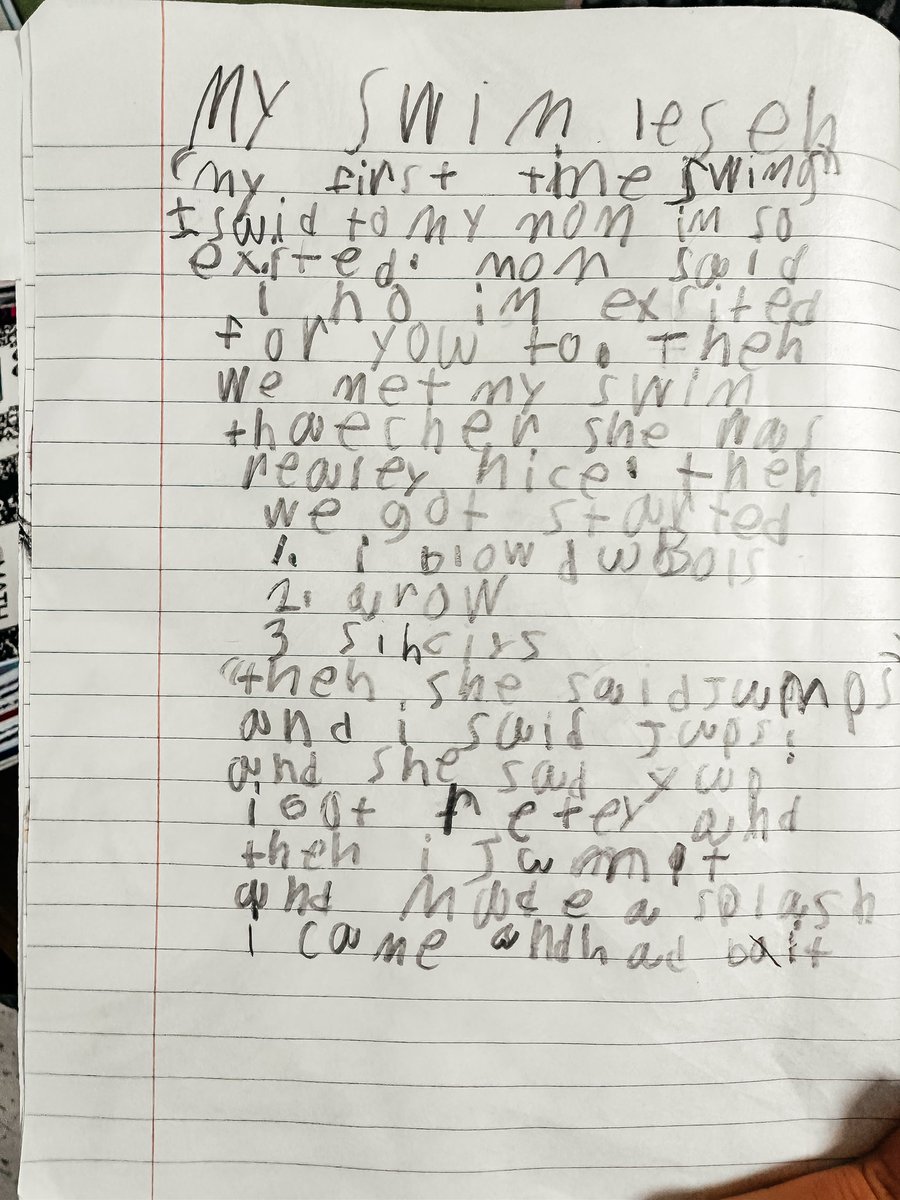 My swim leseh
"my first time swimg"
I said to my mom im so
exsited. mom said
i no im exsited
for yow to. then
we met my swim
thaecher she was
realey nice. then
we got started
1. i blow bwBols
2. arow
3 sincirs
"then she said jwmps"
and i said jwps!
and she sad ywp
i got retey and
then i jwmpt
and made a splash
i came and had
MATH